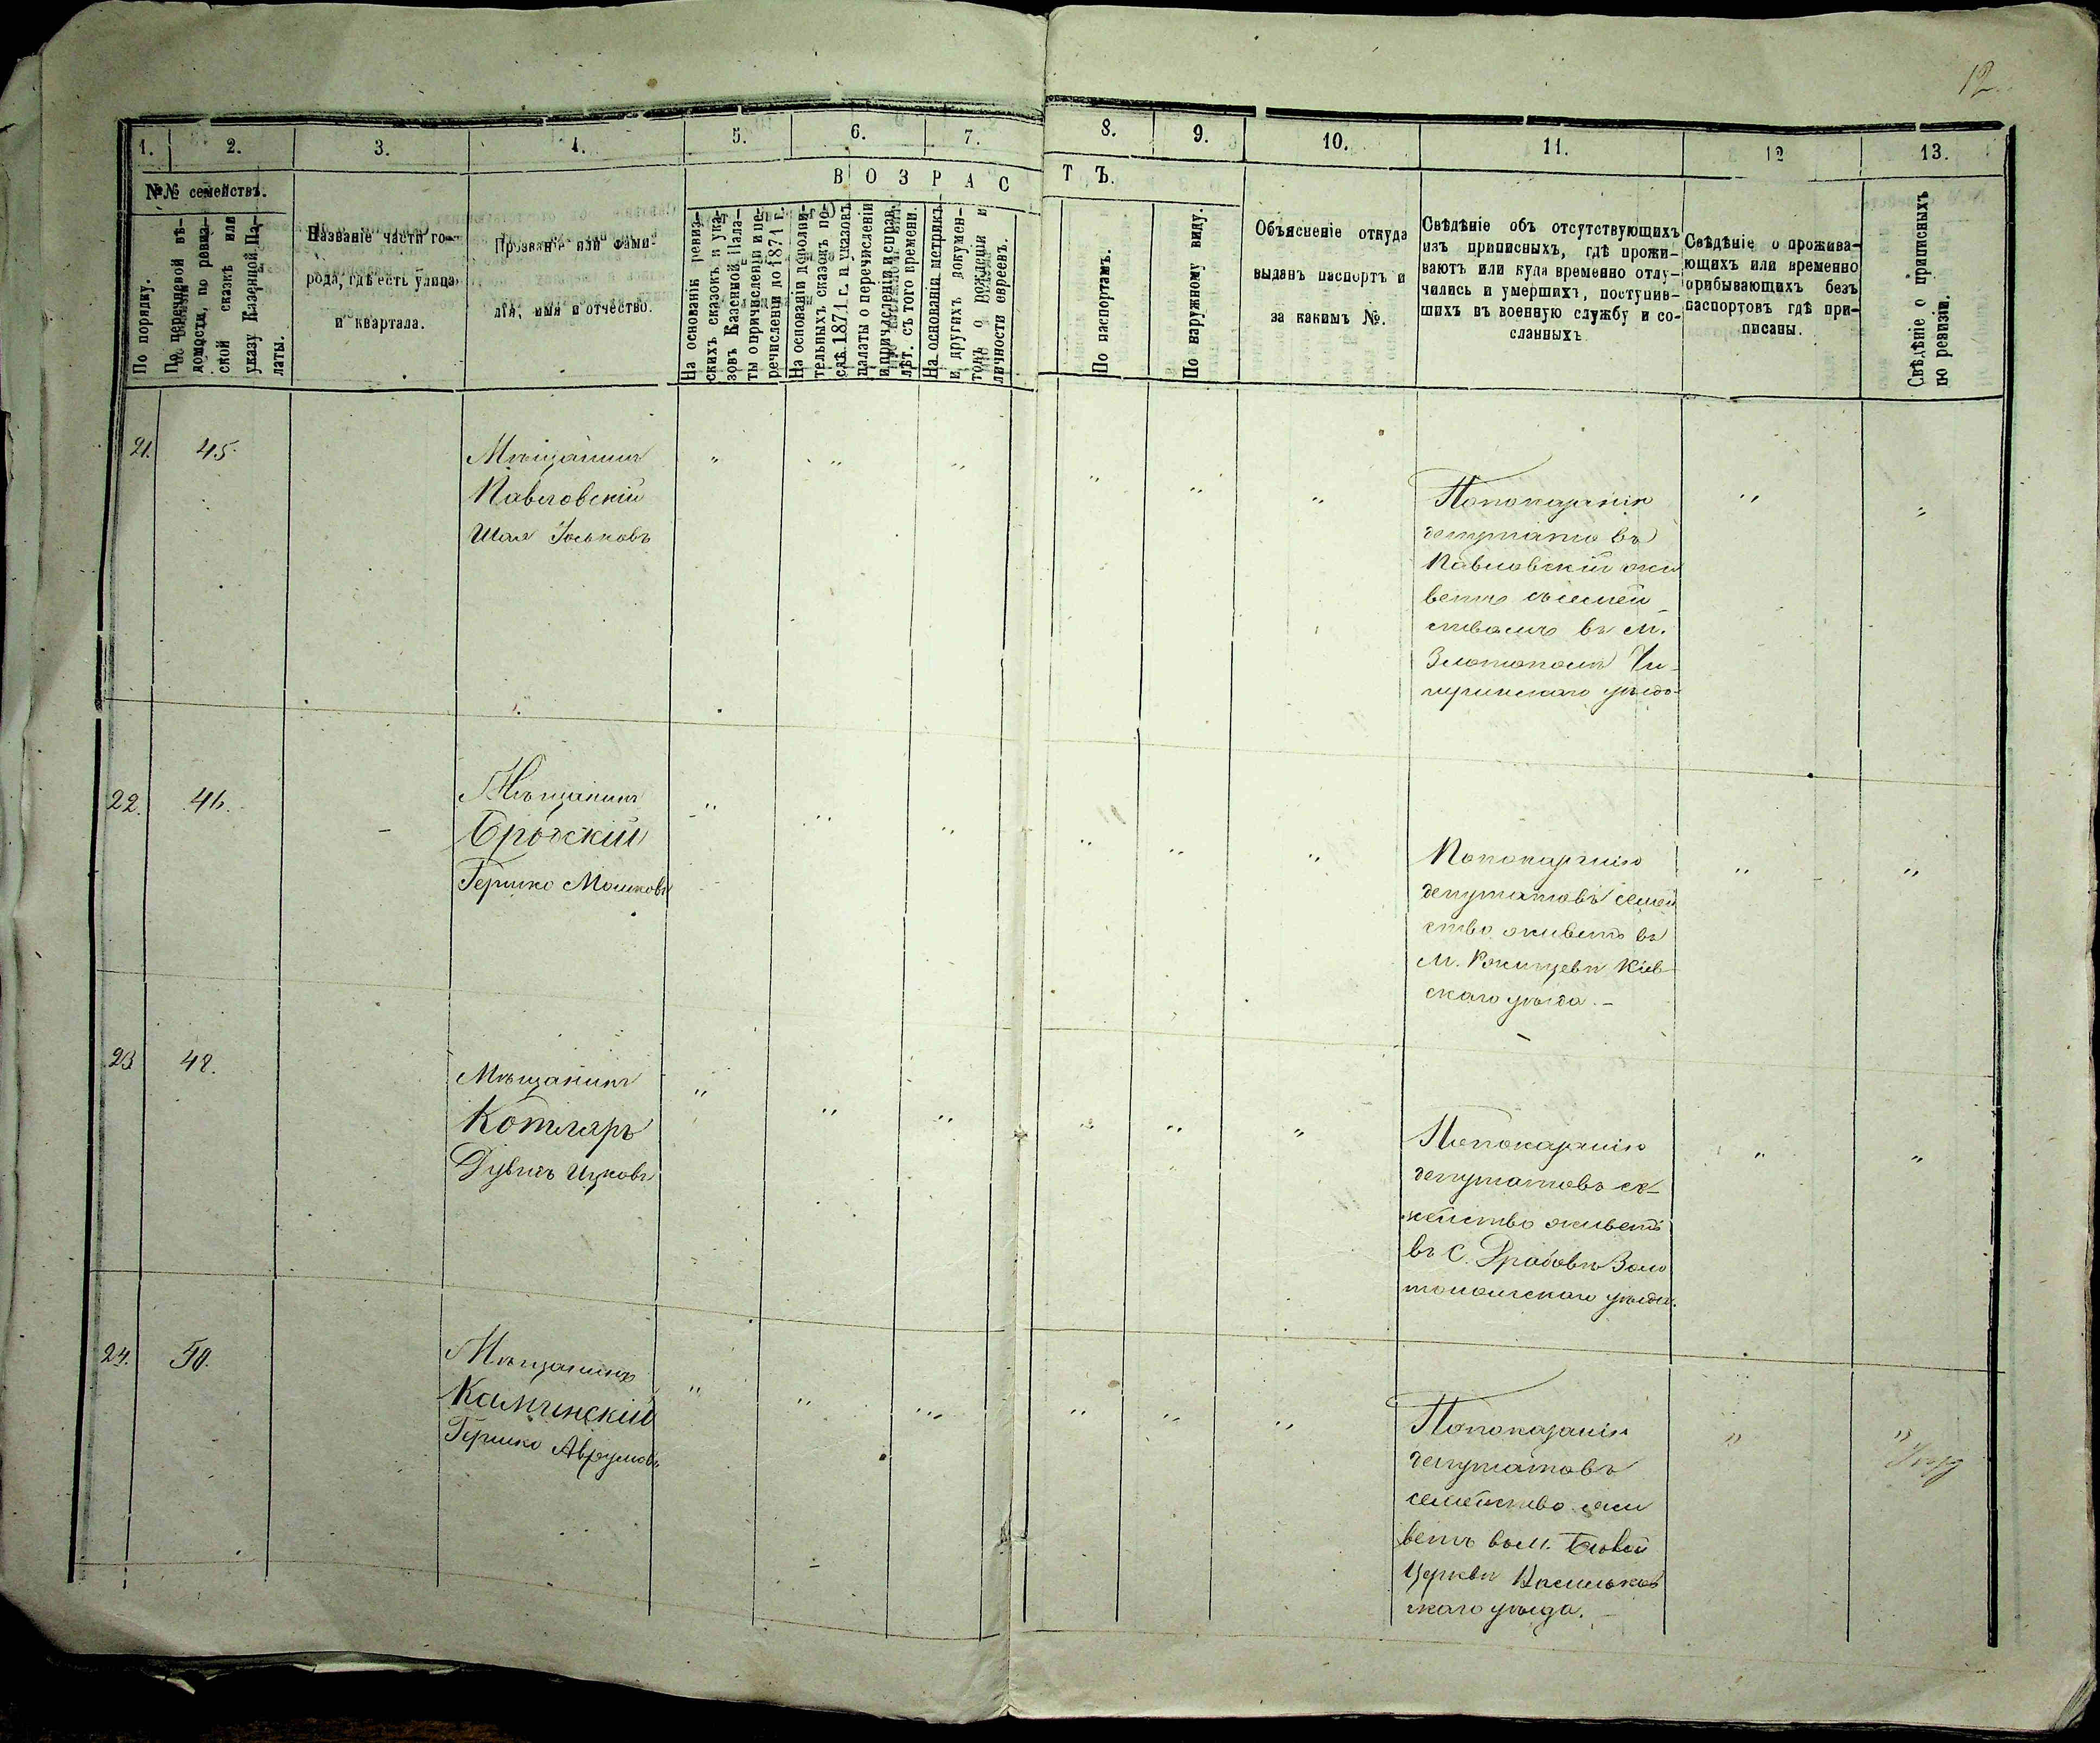 12.
1.
2.
3.
4.
5.
6.
7.
8.
9.
10.
11.
12
13.
№№ семействъ.
По порядку.
По перечневой вѣ-
домости, по ревиз-
ской сказкѣ или
указу Казенной Па-
латы.
Названіе части го-
рода, гдѣ есть улица
и квартала.
Прозваніе или фами-
лія, имя и отчество.
ВОЗРАС
На основаніи ревиз-
скихъ сказокъ и ука-
зовъ Казенной Пала-
ты о причисленіи и пе-
речисленіи до 1871 г.
На основаніи дополни-
тельныхъ сказокъ по-
слѣ 1871 г. и указовъ
палаты о перечисленіи
и причисленіи и справ.
лѣт. съ того времени.
На основаніи метрикъ
и другихъ докумен-
товъ о рожденіи и
личности евреевъ.
ТЪ.
По паспортамъ.
По наружному виду.
Объясненіе откуда
выданъ паспортъ и
за какимъ №.
Свѣдѣніе объ отсутствующихъ
изъ приписныхъ, гдѣ прожи-
ваютъ или куда временно отлу-
чились и умершихъ, поступив-
шихъ въ военную службу и со-
сланныхъ
Свѣдѣніе о прожива-
ющихъ или временно
прибывающихъ безъ
паспортовъ гдѣ при-
писаны.
Свѣдѣніе о приписныхъ
по ревизіи.
21. 45.
Мѣщанинъ
Павловскій
Шая Іоськовъ
" " " " " " " "
Попоказанію
депутатовъ
Павловскій жи
ветъ съ семей
ствомъ въ м.
Златополѣ Чи-
гиринскаго уѣзда
22. 46.
Мѣщанинъ
Бродскій
Гершко Мошковъ
" " " " " " " "
Попоказанію
депутатовъ семей
ство живетъ въ
м. Ржищевѣ Кіев-
скаго уѣзда. –
23 48.
Мѣщанинъ
Котляръ
Дувидъ Ицковъ
" " " " " " " "
Попоказанію
депутатовъ се-
мейство живетъ
въ С. Драбовѣ Золо
тоношскаго уѣзда.
24. 50.
Мѣщанинъ
Каминскій
Гершко Аврумовъ
" " " " " " " "
Попоказанію
депутатовъ
семейство жи
ветъ въ м. Бѣлой
Церкви Васильков
скаго уѣзда.